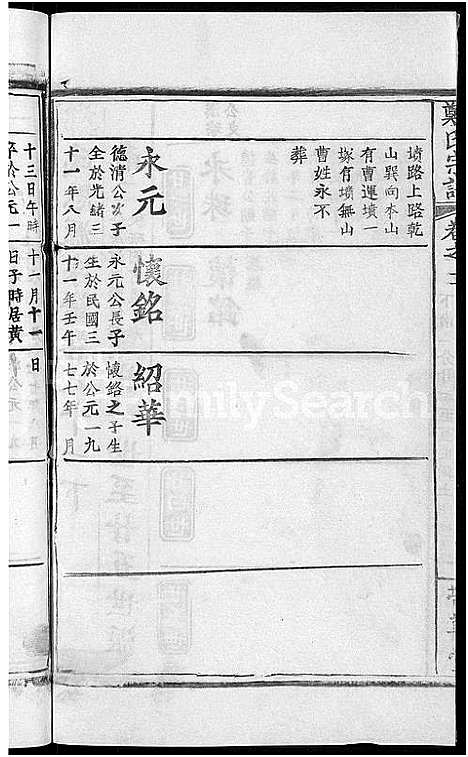 鄭氏宗譜
卷之二
墳路上路乾
山巽向本山
有曹運墳一
塚有墳無山
曹姓永不
葬
永元
德清公次子
全於光緒三
十一年八月
懷銘
永元公長子
生於民國三
十一年壬午
紹華
懷銘之子生
於公元一九
七七年 月
十三日午時
卒於公元一
十一月十一
日子時居黃
日
FamilySearch